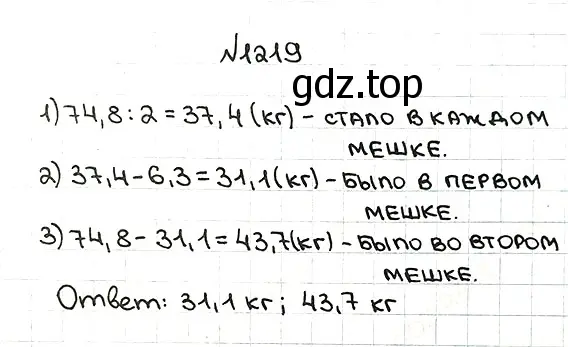 №1219
gdz.top
1) 74,8 : 2 = 37,4 (кг) – стало в каждом
мешке.
2) 37,4 – 6,3 = 31,1 (кг) – было в первом
мешке.
3) 74,8 – 31,1 = 43,7 (кг) – было во втором
мешке.
Ответ: 31,1 кг; 43,7 кг